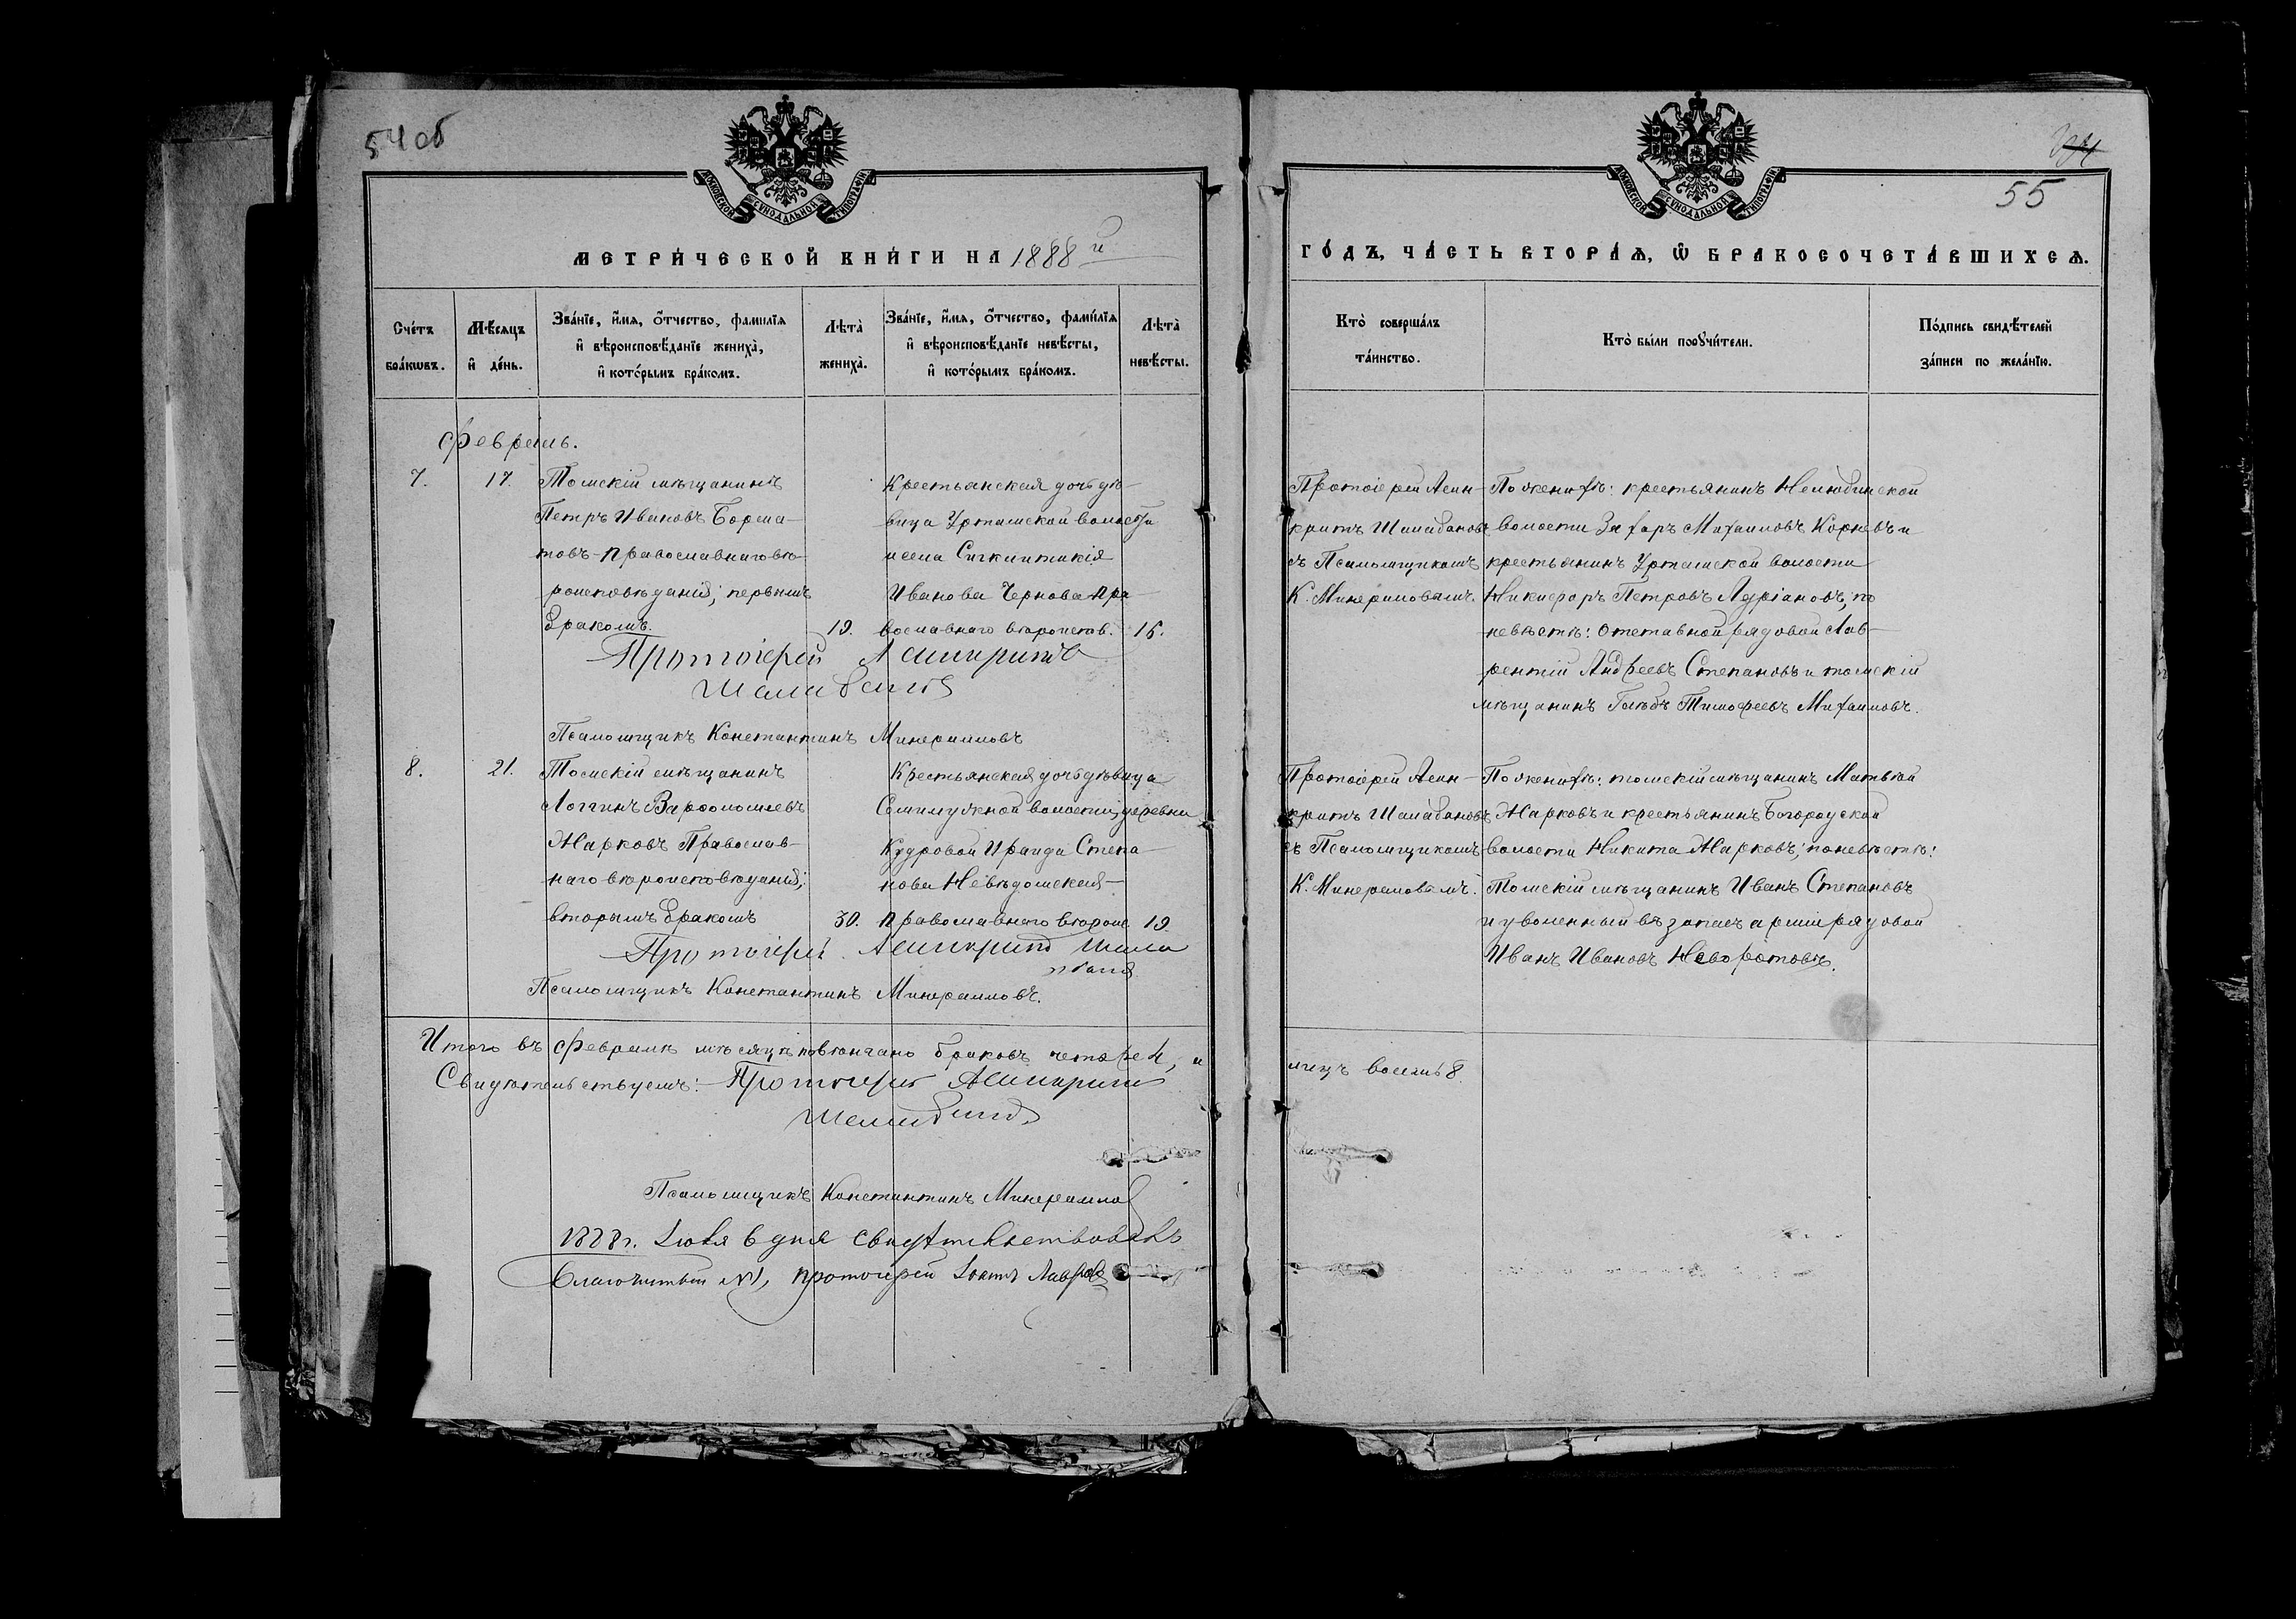 54 об
МОСКОВСКОЙ СѴНОДАЛЬНОЙ ТИПОГРАФІИ
МЕТРИ́ЧЕСКОЙ КНИ́ГИ НА 1888 й
Сче́тъ бра́кѡвъ.
Мѣ́сяцъ и҆ де́нь.
Зва́нїе, и҆́мя, ѻ҆́тчество, фами́лїя
и҆ вѣроисповѣ́данїе жениха̀,
и҆ кото́рымъ бра́комъ.
Лѣта̀ жениха̀.
Зва́нїе, и҆́мя, ѻ҆́тчество, фами́лїя
и҆ вѣроисповѣ́данїе невѣ́сты,
и҆ кото́рымъ бра́комъ.
Лѣта̀ невѣ́сты.
Февраль.
7.
17.
Томскій мѣщанинъ
Петръ Ивановъ
товъ - православнаго вѣ-
роисповѣданія; первымъ
бракомъ.
19.
Крестьянская дочь дѣ-
вица Урталской волости
села
Иванова Чернова пра-
вославнаго вѣроиспов.
16.
Протоіерей Асинкритъ
Шалабановъ
Псаломщикъ Константинъ Минералловъ
8.
21.
Томскій мѣщанинъ
Логгинъ Варфоломеевъ
Жарковъ Православ-
наго вѣроисповѣданія;
вторымъ бракомъ
30.
Крестьянская дочь дѣвица
Семилужной волости, деревни
Кудровой Ираида Степа-
нова Невѣдомская -
православнаго вѣроис.
19.
Протоіерей Асинкритъ Шала
бановъ
Псаломщикъ Константинъ Минералловъ.
Итого въ Февралѣ мѣсяцѣ повѣнчано браковъ четыре 4, и
Свидѣтельствуемъ: Протоіерей Асинкритъ
Шалабановъ
Псаломщикъ Константинъ Минералловъ
1888 г. Іюля 6 дня свидѣтельствовалъ
благочинный №1, протоіерей Лавровъ
34
55
МОСКОВСКОЙ СѴНОДАЛЬНОЙ ТИПОГРАФІИ
ГО́ДЪ, ЧА́СТЬ ВТОРА́Я, Ѽ БРАКОСОЧЕТА́ВШИХСЯ.
Кто̀ соверша́лъ
та́инство.
Кто̀ бы́ли порꙋчи́тели.
По́дпись свидѣ́телей
за́писи по жела́нїю.
Протоіерей Асин-
критъ Шалабановъ
съ Псаломщикомъ
К. Минералловымъ.
По женихѣ: крестьянинъ Нелюбинской
волости Захаръ Михаиловъ Корневъ и
крестьянинъ Урталской волости
Никифоръ Петровъ по
невѣстѣ: отставной рядовой Лав-
рентій Андреевъ Степановъ и томскій
мѣщанинъ Глѣбъ Тимофеевъ Михаиловъ.
Протоіерей Асин-
критъ Шалабановъ
съ Псаломщикомъ
К. Минералловымъ.
По женихѣ: томскій мѣщанинъ Матвѣй
Жарковъ и крестьянинъ Богородской
волости Никита Жарковъ; по невѣстѣ:
Томскій мѣщанинъ Иванъ Степановъ
и уволенный въ запасъ арміи рядовой
Иванъ Ивановъ
лицъ восемь 8.